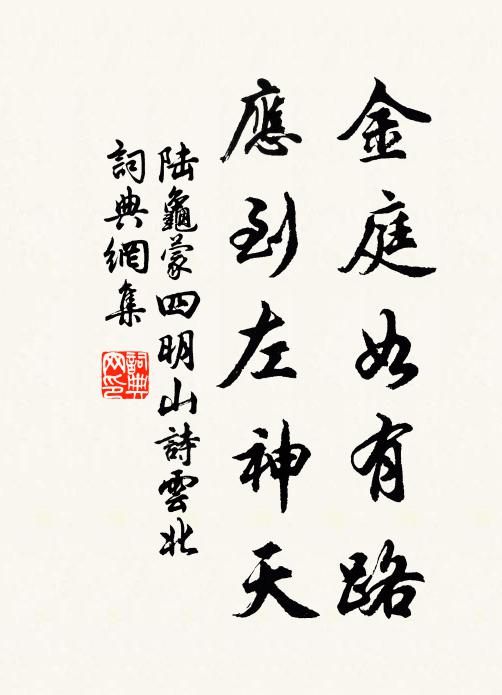 金庭如有路
應到左神天
陸龜蒙四明山詩雲北
詞典網集
詞典网印